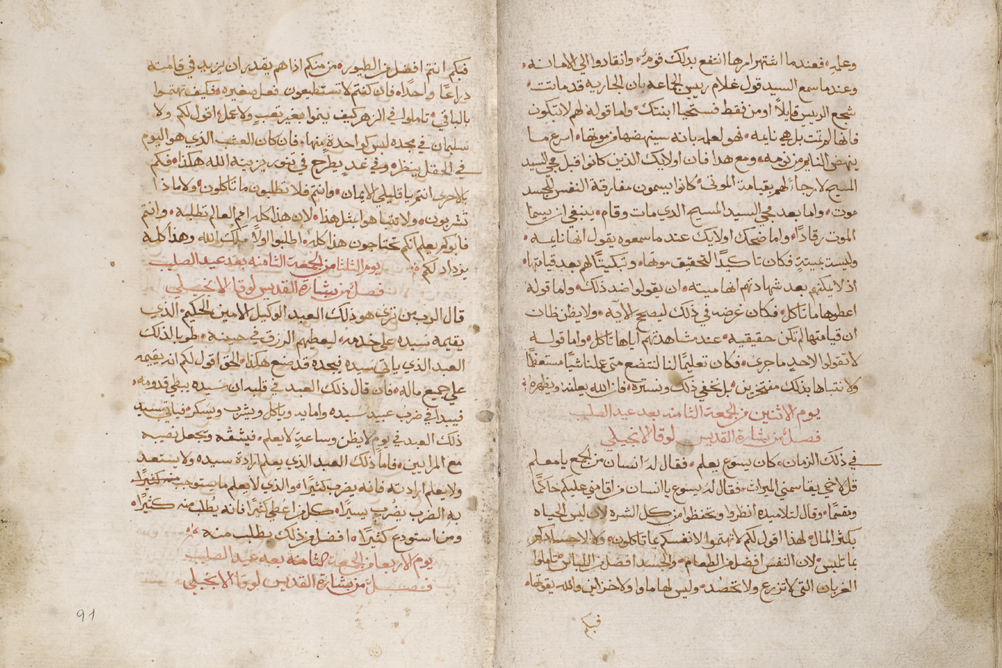 وعليه فعندما اشتهر امرها انتفع بذلك قوم وانقادوا الى الامانه
وعندما سمع السيد قول غلام ريس الجماعه بان الجاريه قد ماتت
شجع الريس قايلًا اومن فقط فستحيا ابنتك واما قوله لهم لا تبكون
فانها لم تمت بل هي نايمه فهو لعلمه بانه سينهضها من موتها اسرع مما
ينهض النايم من نومه ومع هذا فان اولايك الذين كانوا قبل مجي السيد
المسيح لا رجاء لهم بقيامة الموتى كانوا يسمون مفارقة النفس للجسد
موت واما بعد مجي السيد المسيح الذي مات وقام ينبغي ان يسما
الموت رقادًا واما ضحك اولايك عندما سمعوه يقول انها نايمه
وليست بميته فكان تاكيدًا لتحقيق موتها وتبكيتًا لهم بعد قيامتها
اذ لا يمكنهم بعد شهادتهم انها ميته ان يقولوا ضد ذلك واما قوله
اعطوها ما تاكل فكان غرضه في ذلك ليصحح لابه ولا يظن ظان
ان قيامتها لم تكن حقيقيه عند مشاهدتهم اياها تاكل واما قوله
لا تقولوا لاحد ما جرى فكان تعليمًا لنا لنتضع متى عملنا شيًا مستعظمًا
ولا نتباها بذلك مفتخرين بل نخفي ذلك ونستره فان الله يعلنه ويظهره
يوم الاثنين من الجمعة الثامنه بعد عيد الصليب
فصل من بشارة القديس لوقا الانجيلي
في ذلك الزمان كان يسوع يعلم فقال له انسان من الجمع يا معلم
قل لاخي يقاسمني الميراث فقال له يسوع يا انسان من اقامني عليكم حاكمًا
ومقسمًا وقال لتلاميذه انظروا وتحفظوا من كل الشره لان ليس الحياه
بكثرة المال لهذا اقول لكم لا تهتموا لانفسكم بما تاكلون ولا لاجسادكم
بما تلبس لان النفس افضل من الطعام والجسد افضل من اللباس تاملوا
الغربان التي لا تزرع ولا تحصد وليس لها ماوا ولا خزاين والله يقوتها
فبكم
فبكم انتم افضل من الطيور من منكم اذا هم يقدر ان يزيد في قامته
دراعًا واحدا فان كنتم لا تستطيعون فعل صغيره فكيف تهتموا
بالباقي تاملوا في الزهر كيف ينموا بغير تعب ولا عمل اقول لكم ولا
سليمان في مجده لبس كواحدة منها فان كان العشب الذي هو اليوم
في الحقل ينظر وفي غد يطرح في تنور يزينه الله هكذا فكم
بالاحرى انتم يا قليلي الايمان وانتم فلا تطلبون ما تاكلون ولا ماذا
تشربون ولا تهتموا بمثل هذا لان هذا كله امم العالم تطلبه وانتم
فابوكم يعلم انكم تحتاجون هذا كله اطلبوا اولًا ملكوت الله وهذا كله
يزداد لكم
يوم الثلثا من الجمعة الثامنه بعد عيد الصليب
فصل من بشارة القديس لوقا الانجيلي
قال الرب من ترى هو ذلك العبد الوكيل الامين الحكيم الذي
يقيمه سيده على خدمه ليعطيهم الرزق في حينه طوبا لذلك
العبد الذي ياتي سيده فيجده قد صنع هكذا الحق اقول لكم انه يقيمه
على جميع ماله فان قال ذلك العبد في قلبه ان سيده يبطي قدومه
فيبدا في ضرب عبيد سيده وامايه وياكل ويشرب ويسكر فياتي سيد
ذلك العبد في يوم لا يظن وساعة لا يعلم فيشقه ويجعل نصيبه
مع المرايين فاما ذلك العبد الذي يعلم ارادة سيده ولا يستعد
ولا يعلم ارادته فانه يضرب كثيرًا والذي لا يعلم ما يستوجب
به الضرب يضرب يسيرًا كل من اعطي كثيرًا فانه يطلب منه كثيرًا
ومن استودع كثيرًا افضل من ذلك يطلب منه
يوم الاربعا من الجمعة الثامنه بعد عيد الصليب
فصل من بشارة القديس لوقا الانجيلي
91